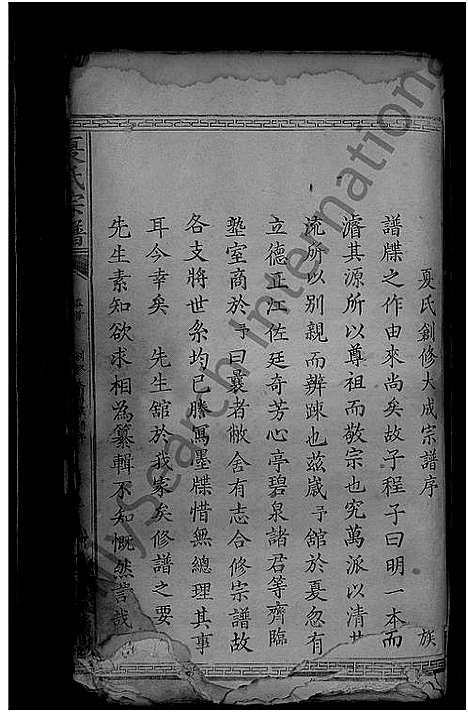 夏氏創修大成宗譜序
族
譜牒之作由來尚矣故子程子曰明一本而
濬其源所以尊祖而敬宗也究萬派以清其
流所以别親而辨踈也茲歲予舘於夏忽有
立德正江佐廷奇芳心亭碧泉諸君等齊臨
塾室商於予曰曩者敝舍有志合修宗譜故
各支將世系均已謄寫墨牒惜無總理其事
耳今幸矣 先生舘於我家矣修譜之要
先生素知欲求相為纂輯不知慨然嘗哉
夏氏宗譜
My Search International